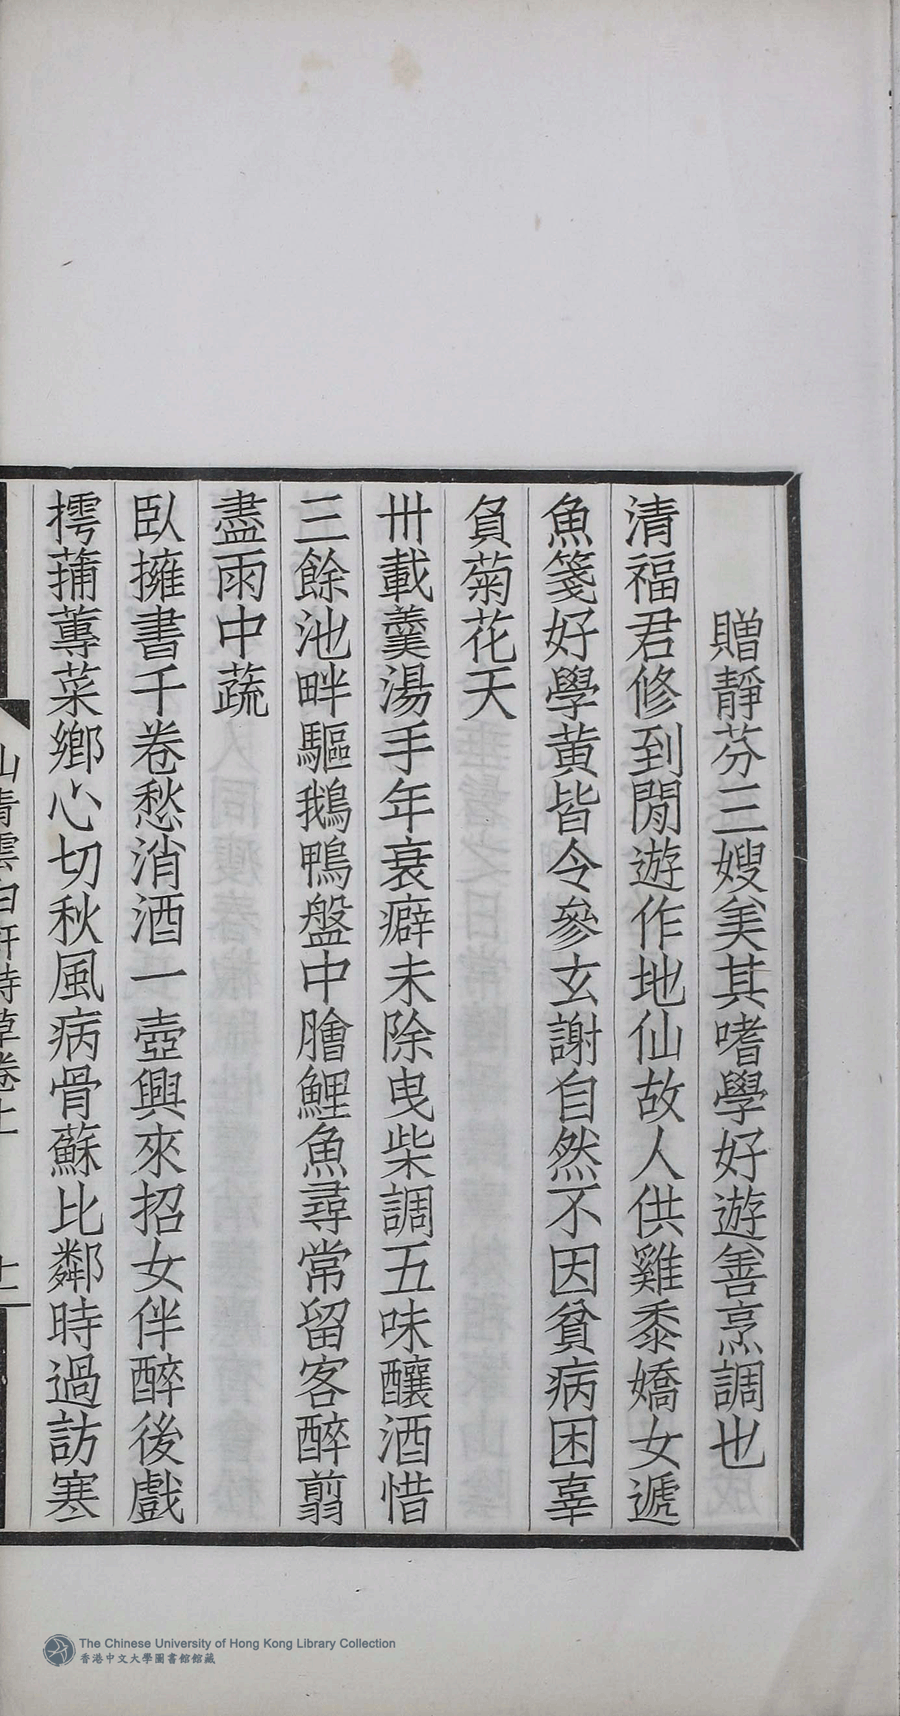 贈靜芬三嫂美其嗜學好遊善烹調也
清福君修到閒遊作地仙故人供雞黍嬌女遞
魚箋好學黃皆令參玄謝自然不因貧病困辜
負菊花天
卅載羹湯手年衰癖未除曳柴調五味釀酒惜
三餘池畔驅鵝鴨盤中膾鯉魚尋常留客醉翦
盡雨中蔬
臥擁書千卷愁消酒一壺興來招女伴醉後戲
樗蒱蓴菜鄉心切秋風病骨蘇比鄰時過訪寒
山青雲白軒詩草卷上
The Chinese University of Hong Kong Library Collection
香港中文大學圖書館館藏